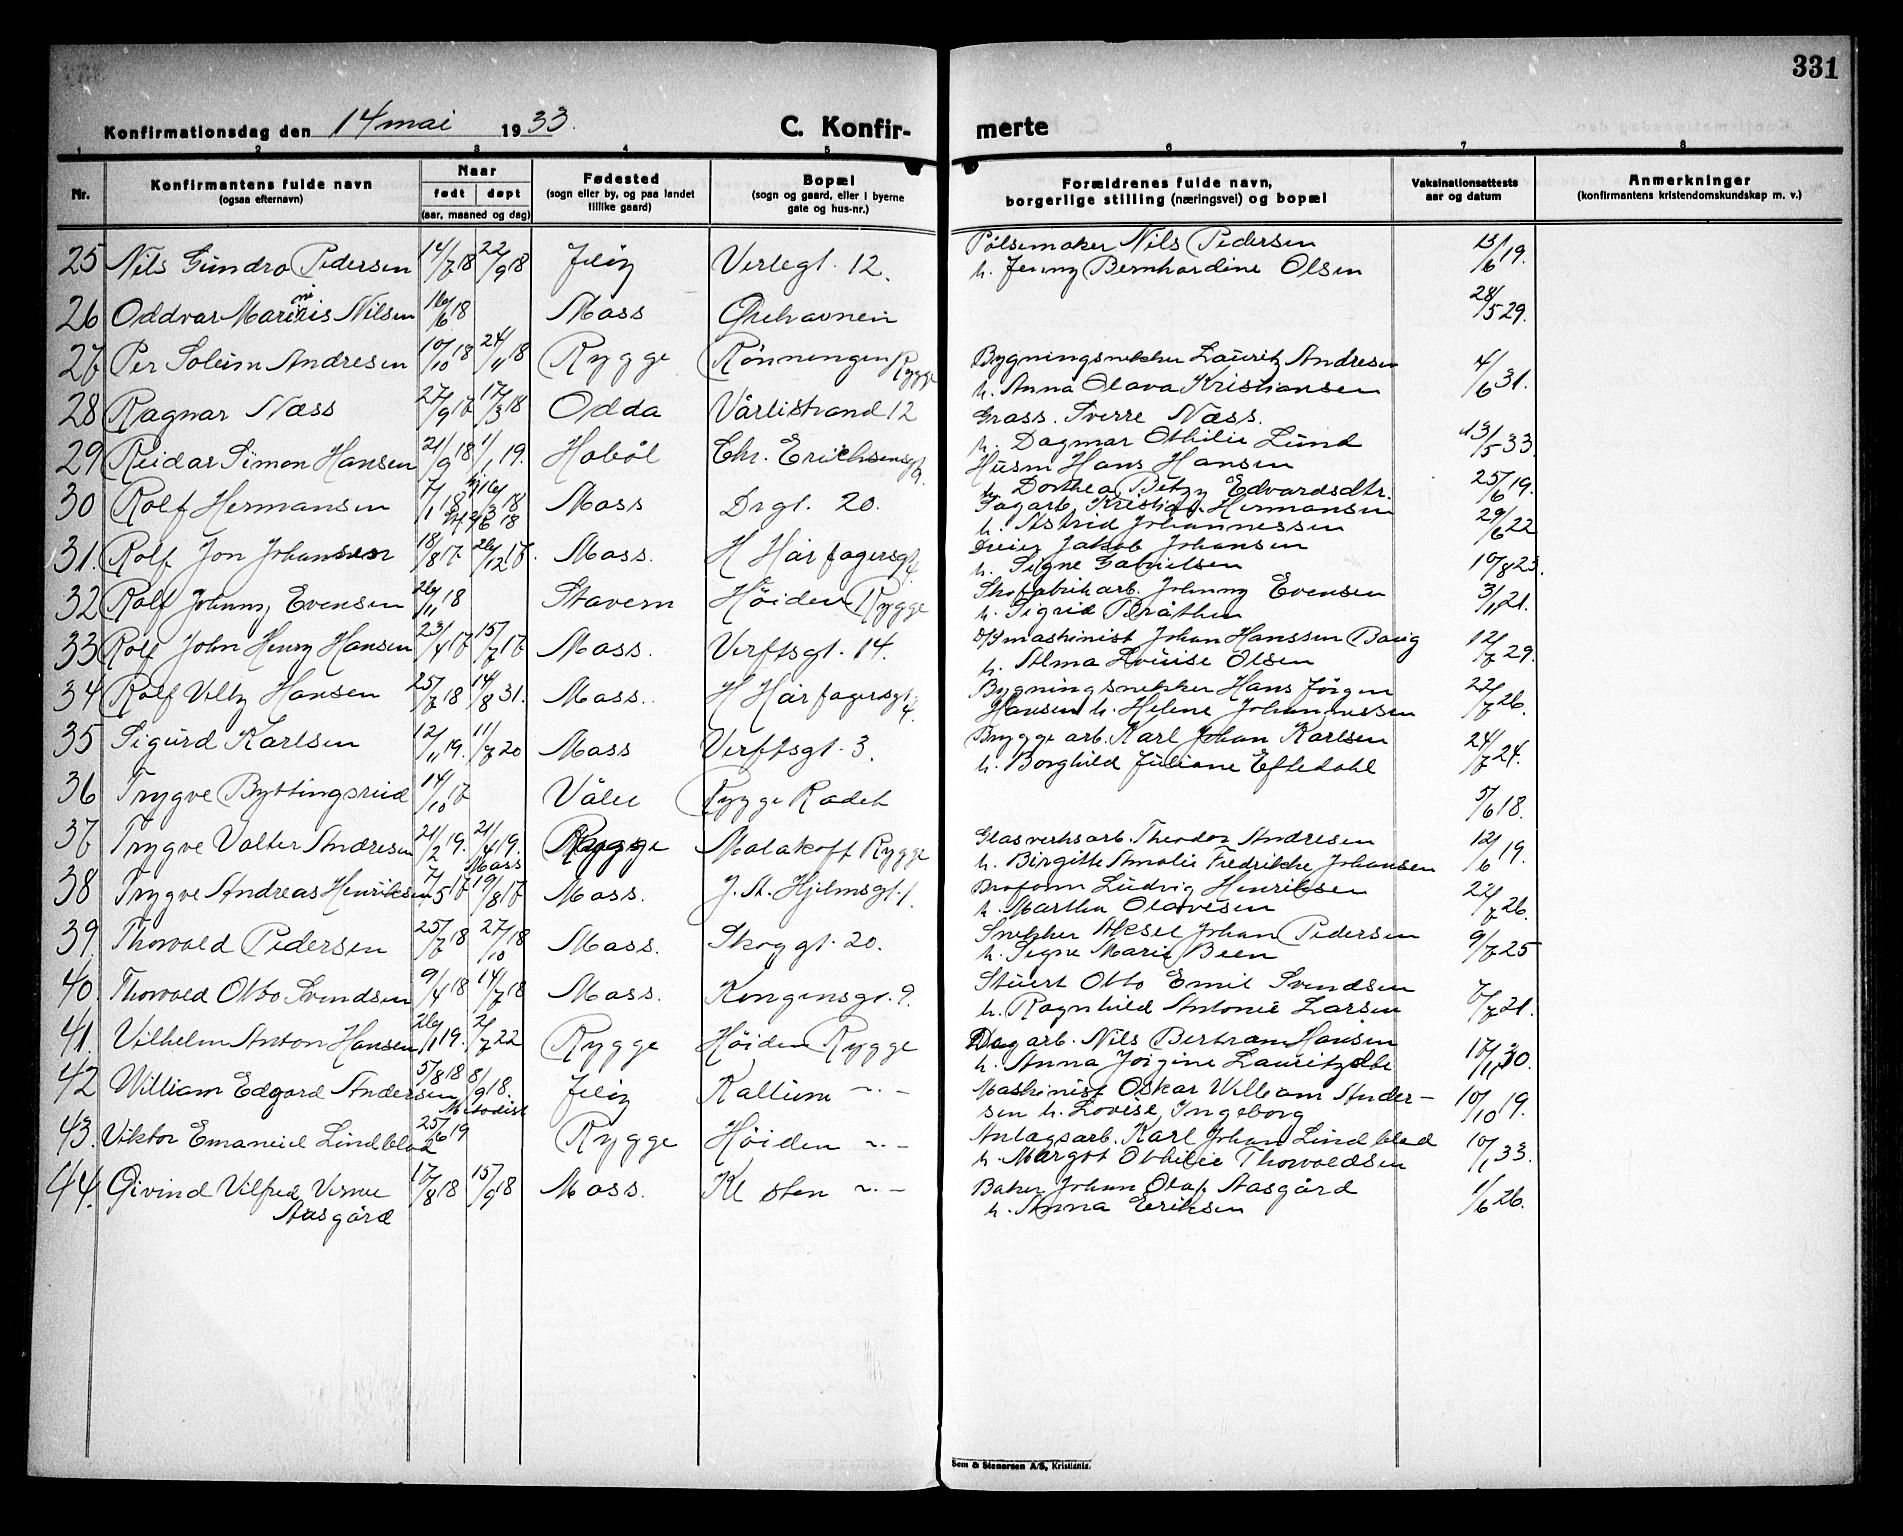 331
Konfirmationsdag den 14 mai 1933.
C. Konfir- merte
1 2 3 4 5 6 7 8
Nr. Konfirmantens fulde navn (ogsaa efternavn) Naar født døpt (aar, maaned og dag) Fødested (sogn eller by, og paa landet tillike gaard) Bopæl (sogn og gaard, eller i byerne gate og hus-nr.) Forældrenes fulde navn, borgerlige stilling (næringsvei) og bopæl Vaksinationsattests aar og datum Anmerkninger (konfirmantens kristendomskundskap m. v.)
25 Nils Gundro Pedersen 14/7 18 22/9 18 Jeløy Verlegt. 12. Pølsemaker Nils Pedersen h. Jenny Bernhardine Olsen 13/6 19.
26 Oddvar Marinis Nilsen 16/6 18 Moss Ørehavnen 28/5 29.
27 Per Solum Andresen 10/10 18 24/11 18 Rygge Rönningen Rygge Bygningsnekker Lauritz Andresen h. Anna Olava Kristiansen 4/6 31.
28 Ragnar Næss 27/9 17 17/3 18 Odda Vårlistrand 12 Gross. Sverre Næss. h. Dagmar Othilie Lund 13/5 33.
29 Reidar Simon Hansen 21/9 18 1/1 19. Hobøl Chr. Erichsensgt. Husm Hans Hansen h. Dorthea Betzy Edvardsdtr. 25/6 19.
30 Rolf Hermansen 7/1 18 Moss Drgt. 20. Fagarb. Kristian Hermansen h. Astrid Johannessen 29/6 22
31. Rolf Jon Johansen 18/8 17. 26/12 17. Moss. H Hårfagersgt. Dreier Jakob Johansen h. Signe Gabrielsen 10/8 23.
32 Rolf Johnny Evensen 26/11 18 Stavern Höiden Rygge Skofabrikarb. Johnny Evensen h. Sigrid Bråthen 3/1 21.
33 Rolf John Henry Hansen 23/4 17 15/7 17 Moss. Verftsgt. 14. D/S maskinist Johan Hanssen h. Alma Lovise Olsen 12/7 29.
34 Rolf Hansen 25/7 18 14/8 31. Moss. H Hårfagersgt. 4. Bygningsnekker Hans Jörgen Hansen h. Helene Johannessen 22/7 26.
35 Sigurd Karlsen 12/11 19. 11/7 20 Moss Verftsgt. 3. Brygge arb. Karl Johan Karlsen h. Borghild Juliane Eftedahl 24/7 24.
36 Trygve Byttingsrud 14/10 17 Våler Rygge Radet 5/6 18.
37 Trygve Valter Andresen 21/2 19. 21/4 19. Moss Rygge Malakoff Rygge Glasverksarb. Theodor Andresen h. Birgitte Amalie Fredrikke Johansen 12/6 19.
38 Trygve Andreas Henriksen 7/5 17 19/8 17 Moss. J. A. Hjelmsgt. 1. Ludvig Henriksen h. Martha Olavesen 22/7 26.
39. Thorvald Pedersen 25/7 18 27/10 18 Moss. Skoggt. 20. Snekker Aksel Johan Pedersen h. Signe Marie Been 9/7 25
40. Thorvald Otto Svendsen 9/4 18 14/7 18 Moss. Kongensgt. 9. Stuert Otto Emil Svendsen h. Ragnhild Antonie Larsen 7/7 21.
41. Vilhelm Anton Hansen 26/1 19. 2/7 22 Rygge Höiden Rygge Dagarb. Nils Bertram Hansen h. Anna Jörgine 17/1 30.
42 William Edgard Andersen 5/8 18 8/9 18. Metodist Jeløy Kallum ~ - Maskinist Oskar William Andersen h. Lovise Ingeborg 10/10 19.
43. Viktor Emanuel Lindblad 25/6 19 Rygge Höiden ~ - Anlagsarb. Karl Johan Lindblad h. Margot Othilie Thorvaldsen 10/1 33.
44. Øivind Vilfred Aasgård 17/8 18 15/9 18 Moss. Kl sten ~ - Baker Johan Olaf Aasgård h. Anna Eriksen 1/6 26.
Sem & Stenersen A/S, Kristiania.